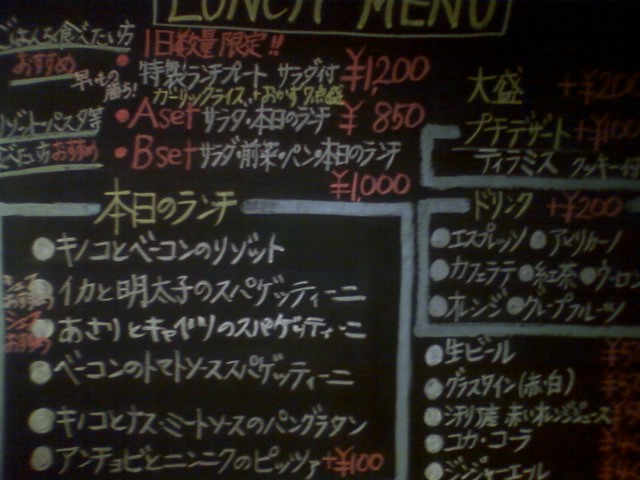 LUNCH MENU
ごはんを食べたい方
おすすめ
早いもの
勝ち!
1日数量限定!!
特製ランチプレート サラダ付 ¥1,200
ガーリックライス+おかず7点盛
リゾット・パスタ等
おすすめ
Aset サラダ・本日のランチ ¥850
Bset サラダ・前菜・パン・本日のランチ
¥1,000
本日のランチ
キノコとベーコンのリゾット
イカと明太子のスパゲッティーニ
シェフ
おすすめ
あさりとキャベツのスパゲッティーニ
ベーコンのトマトソーススパゲッティーニ
キノコとナス・ミートソースのパングラタン
アンチョビとニンニクのピッツァ +¥100
大盛 +¥200
プチデザート +¥100
ティラミス クッキー付
ドリンク +¥200
エスプレッソ アメリカーノ
カフェラテ 紅茶 ウーロン
オレンジ グレープフルーツ
生ビール
グラスワイン(赤・白)
赤いオレンジジュース
コカ・コーラ
ジンジャーエール